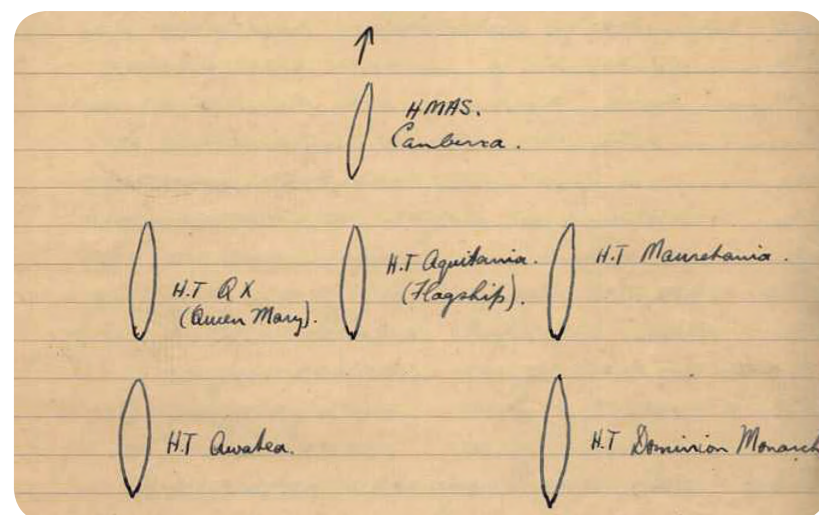 HMAS.
Canberra.
H.T QX
(Queen Mary).
H.T Aquitania.
(Flagship).
H.T Mauretania.
H.T Awatea.
H.T Dominion Monarch